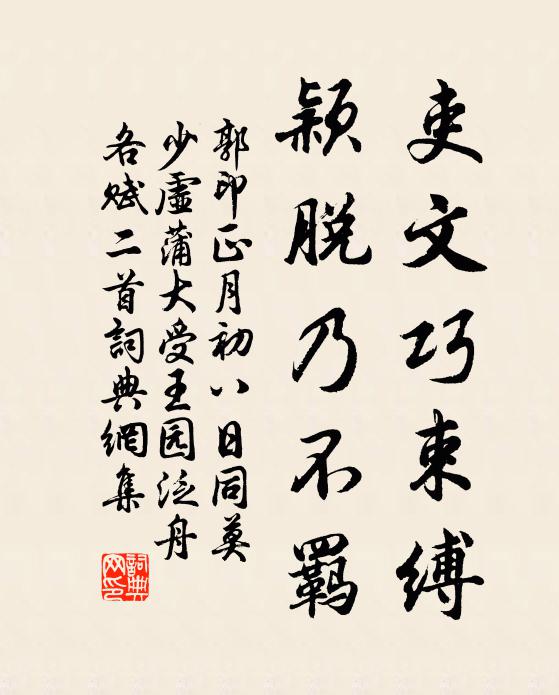 吏文巧束縛
穎脱乃不羈
郭印正月初八日同莫
少虛蒲大受王园泛舟
各賦二首詞典網集
詞典网印